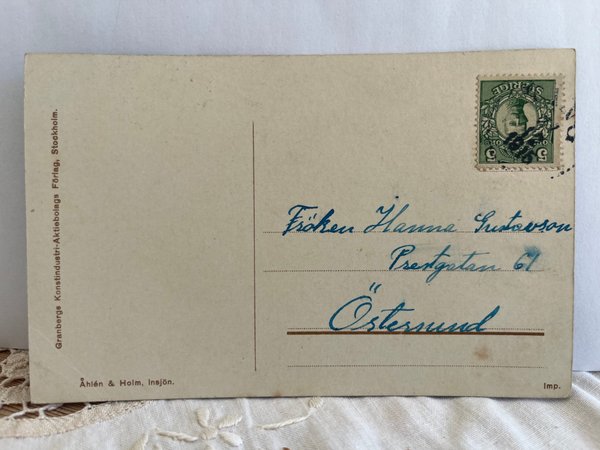 Granbergs Konstindustri-Aktiebolags Förlag, Stockholm.
SVERIGE
5 5
Fröken Hanna Gustavson
Prestgatan 61
Östersund
Åhlén & Holm, Insjön.
Imp.